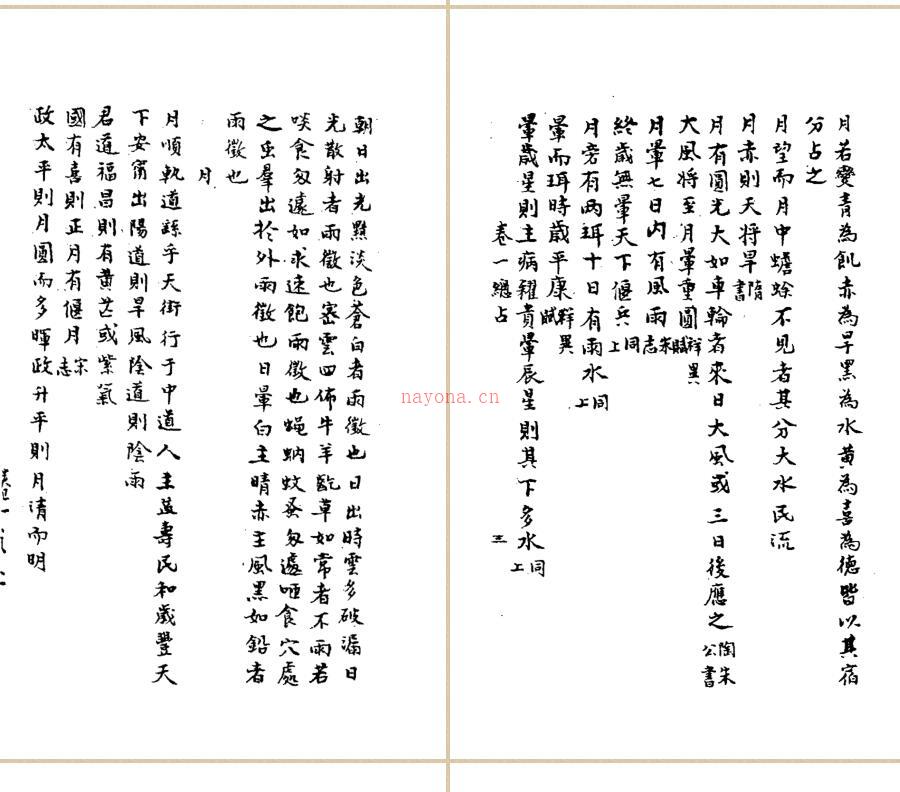 月若變青為飢赤為旱黑為水黃為喜為德皆以其宿
分占之
月望而月中蟾蜍不見者其分大水民流
月赤則天將旱隋書
月有圓光大如車輪者來日大風或三日後應之陶朱公書
大風將至月暈重圓祥異賦
月暈七日內有風雨宋志
終歲無暈天下偃兵同上
月旁有兩珥十日有雨水同上
暈而珥時歲平康祥異賦
暈歲星則主病糴貴暈辰星則其下多水同上
卷一總占 三
朝日出光黯淡色蒼白者雨徵也日出時雲多破漏日
光散射者雨徵也密雲四佈牛羊齕草如常者不雨若
啖食匆遽如求速飽雨徵也蠅蚋蚊蚤匆遽咂食穴處
之虫羣出於外雨徵也日暈白主晴赤主風黑如鉛者
雨徵也
月
月順軌道繇乎天街行于中道人主益壽民和歲豐天
下安甯出陽道則旱風陰道則陰雨
君道福昌則有黃芒或紫氣
國有喜則正月有偃月宋志
政太平則月圓而多暉政升平則月清而明
nayona.cn